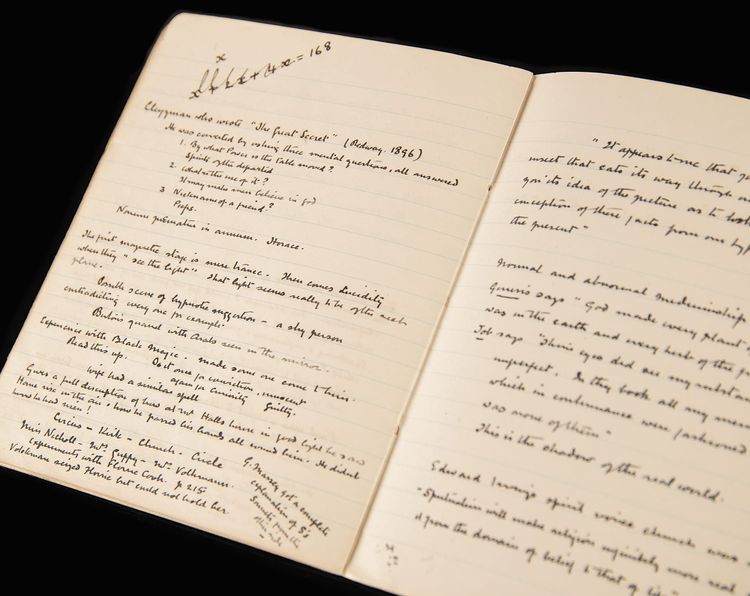 x
x + x + 4x = 168
Clergyman who wrote "The Great Secret" (Redway. 1896)
He was converted by asking three mental questions, all answered
1. By what Power is the table moved?
Spirits of the departed
2. What is the use of it?
It may make men believe in god
3 Nickname of a friend?
Peeps.
Horace.
The first magnetic stage is mere trance. Then comes Lucidity
when they "see the light". That light seems really to be often each
plane.
Possible scene of hypnotic suggestion – a shy person
contradicting every one for example.
Burton's quarrel with Arabs seen in the mirror.
Experience with Black Magic. Made some one come to him.
Read this up. Do it once for conviction, innocent
again for curiosity Guilty.
wife had a similar spell
Gives a full description of how at Mr Halls house in good light he saw
Home rise in the air & how he passed his hands all round him. He didn't
know he had risen!
Circus – Kirk – Church – Circle
Miss Nicholl – Mrs Guppy – Mrs Volkmann.
Experiments with Florrie Cook. P 215
Volckman seized Florrie but could not hold her
G. Massey got a complete
explanation of S's
Sonnets from the
other side
"It appears to me that
insect that eats its way through
idea of the picture as to
conception of these facts from our
the present"
Normal and abnormal mediumship
Genesis says "God made every plant
was in the earth and every herb of the
Job says. Thine eyes did see my substance
imperfect. In thy book all my
which in continuance were fashioned
was none of them"
This is the shadow of the real world.
Edward Irvings spirit voices church was
"Spiritualism will make religion infinitely more real
it from the domain of belief to that of life"